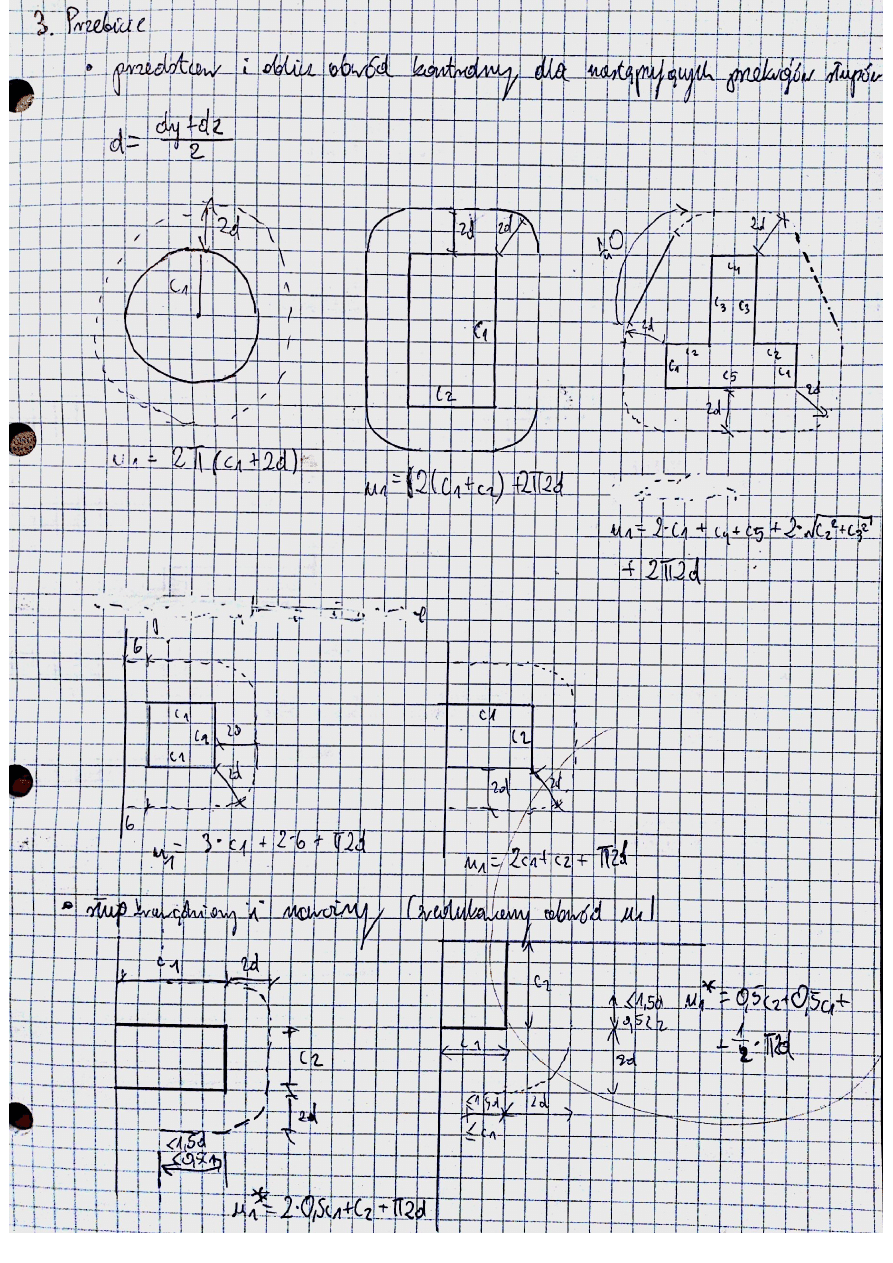 3. Przebicie
• przedstaw i oblicz obwód kontrolny dla następujących przekrojów słupów
d = (dy+dz)/2
2d
c1
2d
2d
c1
c2
2d
c4
c3
c3
2d
c2
c2
c1
c5
c1
2d
2d
u1 = 2π(c1+2d)
u1 = 2(c1+c2)+2π2d
u1 = 2·c1 + c4 + c5 + 2·√(c2²+c3²)
+ 2π2d
6
c1
c1
2d
c1
2d
6
u1 = 3·c1 + 2·6 + π2d
c1
c2
2d
2d
u1 = 2c1+c2 + π2d
• słup krawędziowy i narożny (zredukowany obwód u1)
c1
2d
c2
2d
≤1,5d
u1* = 2·0,5c1+c2 + π2d
c2
c1
≤1,5d
0,5c2
2d
2d
≤c1
u1* = 0,5c2+0,5c1+
+ 1/2·π2d